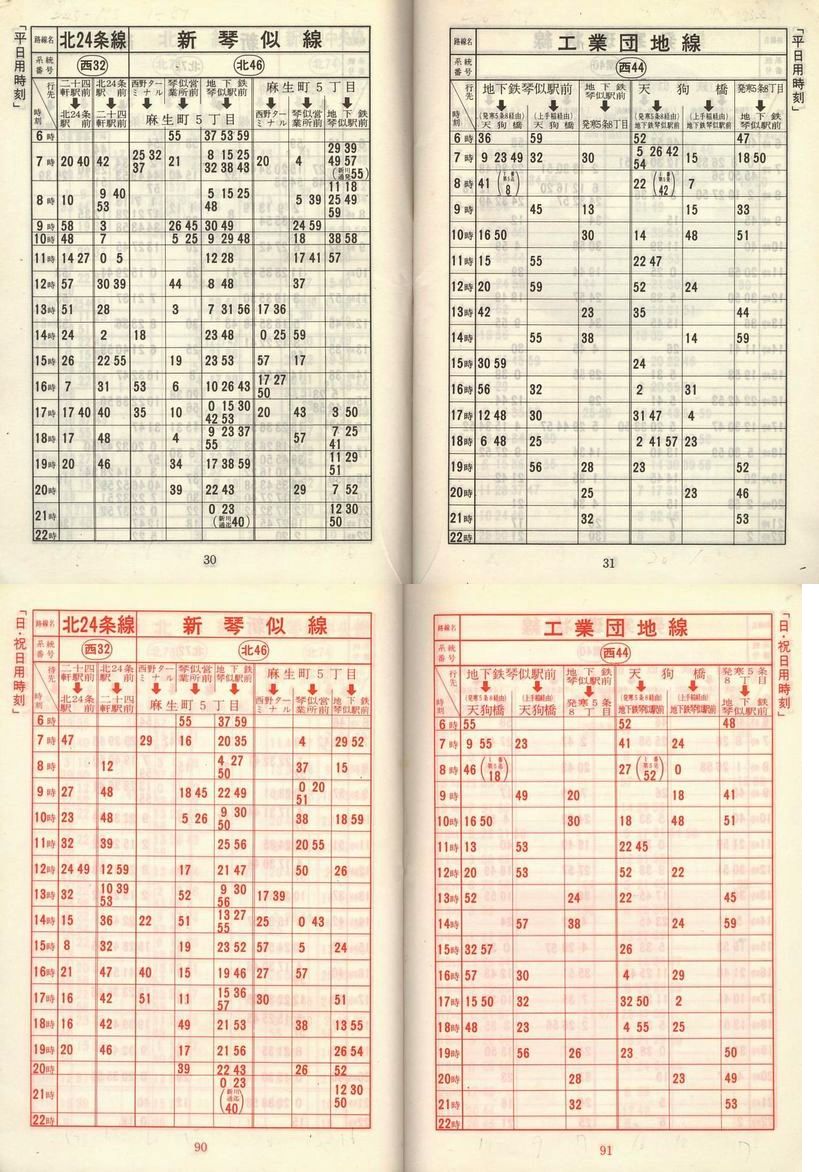 「平日用時刻」
路線名 北24条線 新琴似線
系統番号 西32 北46
行先 時刻 二十四軒駅前 北24条駅前 西野ターミナル 琴似営業所前 地下鉄琴似駅前 麻生町5丁目
北24条駅前 二十四軒駅前 麻生町5丁目 西野ターミナル 琴似営業所前 地下鉄琴似駅前
6時 55 37 53 59
7時 20 40 42 25 32 37 21 8 15 25 32 38 43 20 4 29 39 49 57 (新川通発55)
8時 10 9 40 53 5 15 25 48 5 39 11 18 25 49 59
9時 58 3 26 45 30 49 24 59
10時 48 7 5 25 9 29 48 18 38 58
11時 14 27 0 5 12 28 17 41 57
12時 57 30 39 44 8 48 37
13時 51 28 3 7 31 56 17 36
14時 24 2 18 23 48 0 25 59
15時 26 22 55 19 23 53 57 17
16時 7 31 53 6 10 26 43 17 27 50
17時 17 40 40 35 10 0 15 30 42 53 20 43 3 50
18時 17 48 4 9 23 37 55 57 7 25 41
19時 20 46 34 17 38 59 11 29 51
20時 39 22 43 29 7 52
21時 0 23 (新川通迄40) 12 30 50
22時
30
「平日用時刻」
路線名 工業団地線
系統番号 西44
行先 時刻 地下鉄琴似駅前 地下鉄琴似駅前 天狗橋 発寒5条8丁目
(発寒5条8経由)天狗橋 (上手稲経由)天狗橋 発寒5条8丁目 (発寒5条8経由)地下鉄琴似駅前 (上手稲経由)地下鉄琴似駅前 地下鉄琴似駅前
6時 36 59 52 47
7時 9 23 49 32 30 5 26 42 54 15 18 50
8時 41 8 22 42 7
9時 45 13 15 33
10時 16 50 30 14 48 51
11時 15 55 22 47
12時 20 59 52 24
13時 42 23 35 44
14時 55 38 14 59
15時 30 59 24
16時 56 32 2 31
17時 12 48 30 31 47 4
18時 6 48 25 2 41 57 23
19時 56 28 23 52
20時 25 23 46
21時 32 53
22時
31
「日・祝日用時刻」
路線名 北24条線 新琴似線
系統番号 西32 北46
行先 時刻 二十四軒駅前 北24条駅前 西野ターミナル 琴似営業所前 地下鉄琴似駅前 麻生町5丁目
北24条駅前 二十四軒駅前 麻生町5丁目 西野ターミナル 琴似営業所前 地下鉄琴似駅前
6時 55 37 59
7時 47 29 16 20 35 4 29 52
8時 12 4 27 50 37 15
9時 27 48 18 45 22 49 0 20 51
10時 23 48 5 26 9 30 50 38 18 59
11時 32 39 25 56 20 55
12時 24 49 12 59 17 21 47 50 26
13時 32 10 39 53 52 9 30 56 17 39
14時 15 36 22 51 13 27 55 25 0 43
15時 8 32 19 23 52 57 5 24
16時 21 47 40 15 19 46 27 57
17時 16 42 51 11 15 36 57 30 51
18時 16 42 49 21 53 38 13 55
19時 20 46 17 21 56 26 54
20時 39 22 43 26 52
21時 0 23 (新川通迄40) 12 30 50
22時
90
「日・祝日用時刻」
路線名 工業団地線
系統番号 西44
行先 時刻 地下鉄琴似駅前 地下鉄琴似駅前 天狗橋 発寒5条8丁目
(発寒5条8経由)天狗橋 (上手稲経由)天狗橋 発寒5条8丁目 (発寒5条8経由)地下鉄琴似駅前 (上手稲経由)地下鉄琴似駅前 地下鉄琴似駅前
6時 55 52 48
7時 9 55 23 41 24
8時 46 18 27 52 0
9時 49 20 18 41
10時 16 50 30 18 48 51
11時 13 53 22 45
12時 20 53 52 22
13時 52 24 22 45
14時 57 38 24 59
15時 32 57 26
16時 57 30 4 29
17時 15 50 32 32 50 2
18時 48 23 4 55 25
19時 56 26 23 50
20時 28 23 49
21時 32 53
22時
91